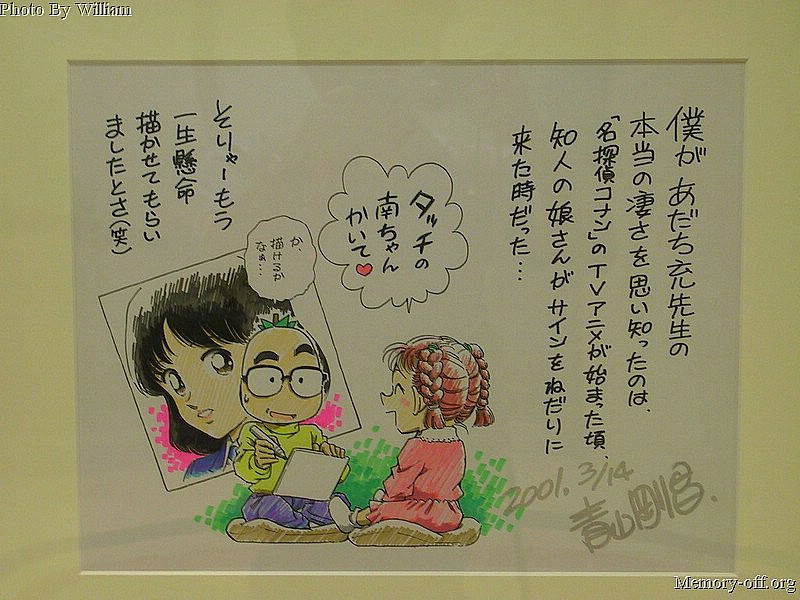 Photo By William
僕があだち充先生の
本当の凄さを思い知ったのは、
「名探偵コナン」のTVアニメが始まった頃、
知人の娘さんがサインをねだりに
来た時だった…
タッチの
南ちゃん
かいて♥
か、
描けるか
なぁ…
そりゃーもう
一生懸命
描かせてもらい
ましたとさ(笑)
2001. 3/14
青山剛昌.
Memory-off.org